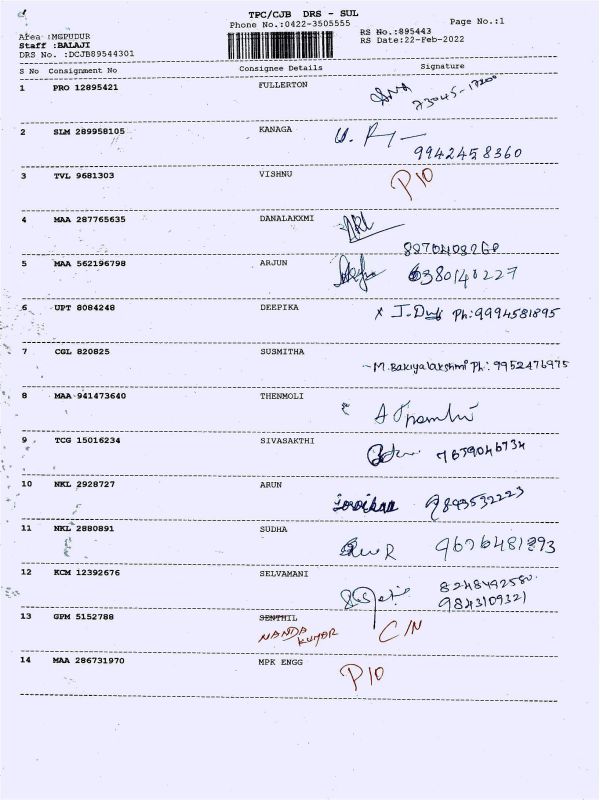 TPC/CJB DRS - SUL
Phone No.:0422-3505555
Page No.:1
Area :MGPUDUR
Staff :BALAJI
DRS No. :DCJB89544301
RS No.:895443
RS Date:22-Feb-2022
S No Consignment No Consignee Details Signature
1 PRO 12895421 FULLERTON
2 SLM 289958105 KANAGA
9942458360
3 TVL 9681303 VISHNU P10
4 MAA 287765635 DANALAKXMI
5 MAA 562196798 ARJUN 6380140227
6 UPT 8084248 DEEPIKA x J. Ph: 9994581895
7 CGL 820825 SUSMITHA
M. Bakiyalakshmi Ph: 9952476975
8 MAA 941473640 THENMOLI
9 TCG 15016234 SIVASAKTHI 7639046734
10 NKL 2928727 ARUN 9893532223
11 NKL 2880891 SUDHA
12 KCM 12392676 SELVAMANI 8248492580
9843109321
13 GPM 5152788 SENTHIL
NANDA KUMAR C/N
14 MAA 286731970 MPK ENGG P10